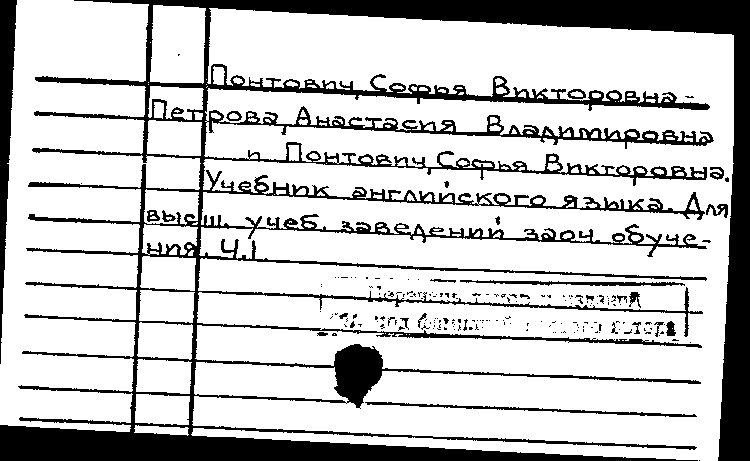 Понтович, Софья Викторовна -
Петрова, Анастасия Владимировна
и Понтович, Софья Викторовна.
Учебник английского языка. Для
высш. учеб. заведений заоч. обуче-
ния. Ч.1
Перечень томов и изданий
см. под фамилией первого автора